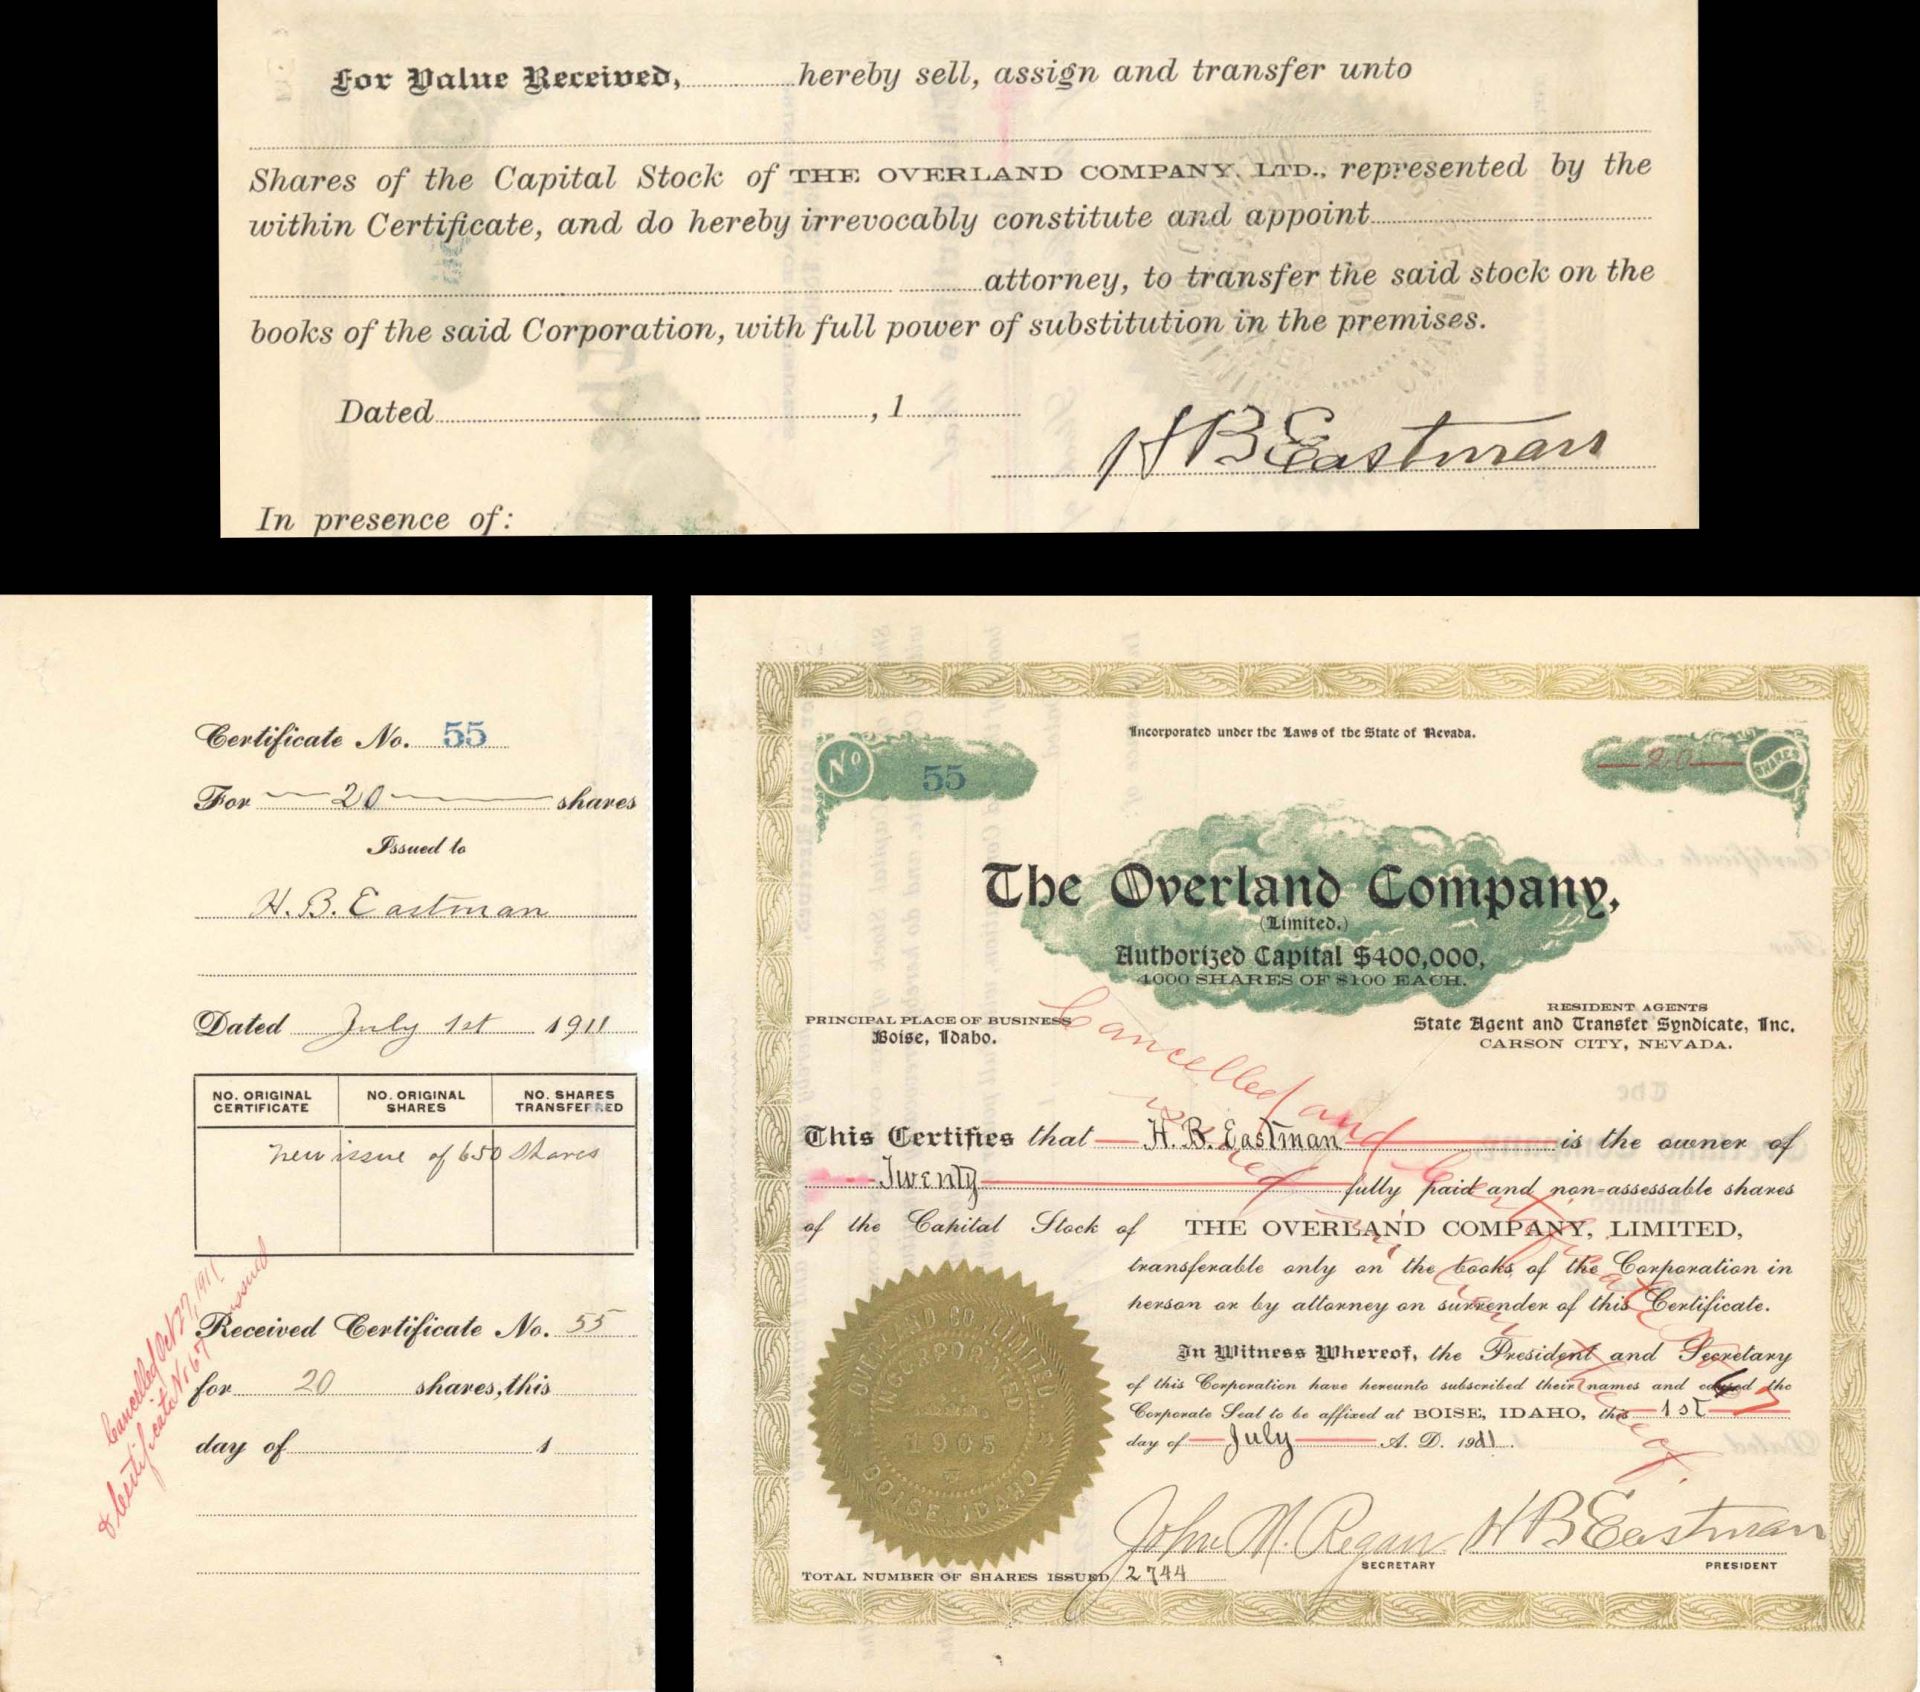 For Value Received, hereby sell, assign and transfer unto
Shares of the Capital Stock of THE OVERLAND COMPANY, LTD., represented by the
within Certificate, and do hereby irrevocably constitute and appoint
attorney, to transfer the said stock on the
books of the said Corporation, with full power of substitution in the premises.
Dated , 1
H B Eastman
In presence of:
Certificate No. 55
For 20 shares
Issued to
H. B. Eastman
Dated July 1st 1911
NO. ORIGINAL CERTIFICATE NO. ORIGINAL SHARES NO. SHARES TRANSFERRED
new issue of 650 Shares
Received Certificate No. 55
for 20 shares, this
day of 1
Cancelled Oct 27, 1911
& Certificate No 67 issued
Incorporated under the Laws of the State of Nevada.
No 55
20 SHARES
The Overland Company,
(Limited.)
Authorized Capital $400,000,
4000 SHARES OF $100 EACH.
PRINCIPAL PLACE OF BUSINESS
Boise, Idaho.
RESIDENT AGENTS
State Agent and Transfer Syndicate, Inc.
CARSON CITY, NEVADA.
This Certifies that H. B. Eastman is the owner of
Twenty fully paid and non-assessable shares
of the Capital Stock of THE OVERLAND COMPANY, LIMITED,
transferable only on the books of the Corporation in
person or by attorney on surrender of this Certificate.
In Witness Whereof, the President and Secretary
of this Corporation have hereunto subscribed their names and caused the
Corporate Seal to be affixed at BOISE, IDAHO, this 1st
day of July A. D. 1911.
Cancelled and Certificate
67 issued in lieu thereof.
OVERLAND CO., LIMITED.
INCORPORATED
1905
BOISE IDAHO
John M. Regan SECRETARY
H B Eastman PRESIDENT
TOTAL NUMBER OF SHARES ISSUED 2744